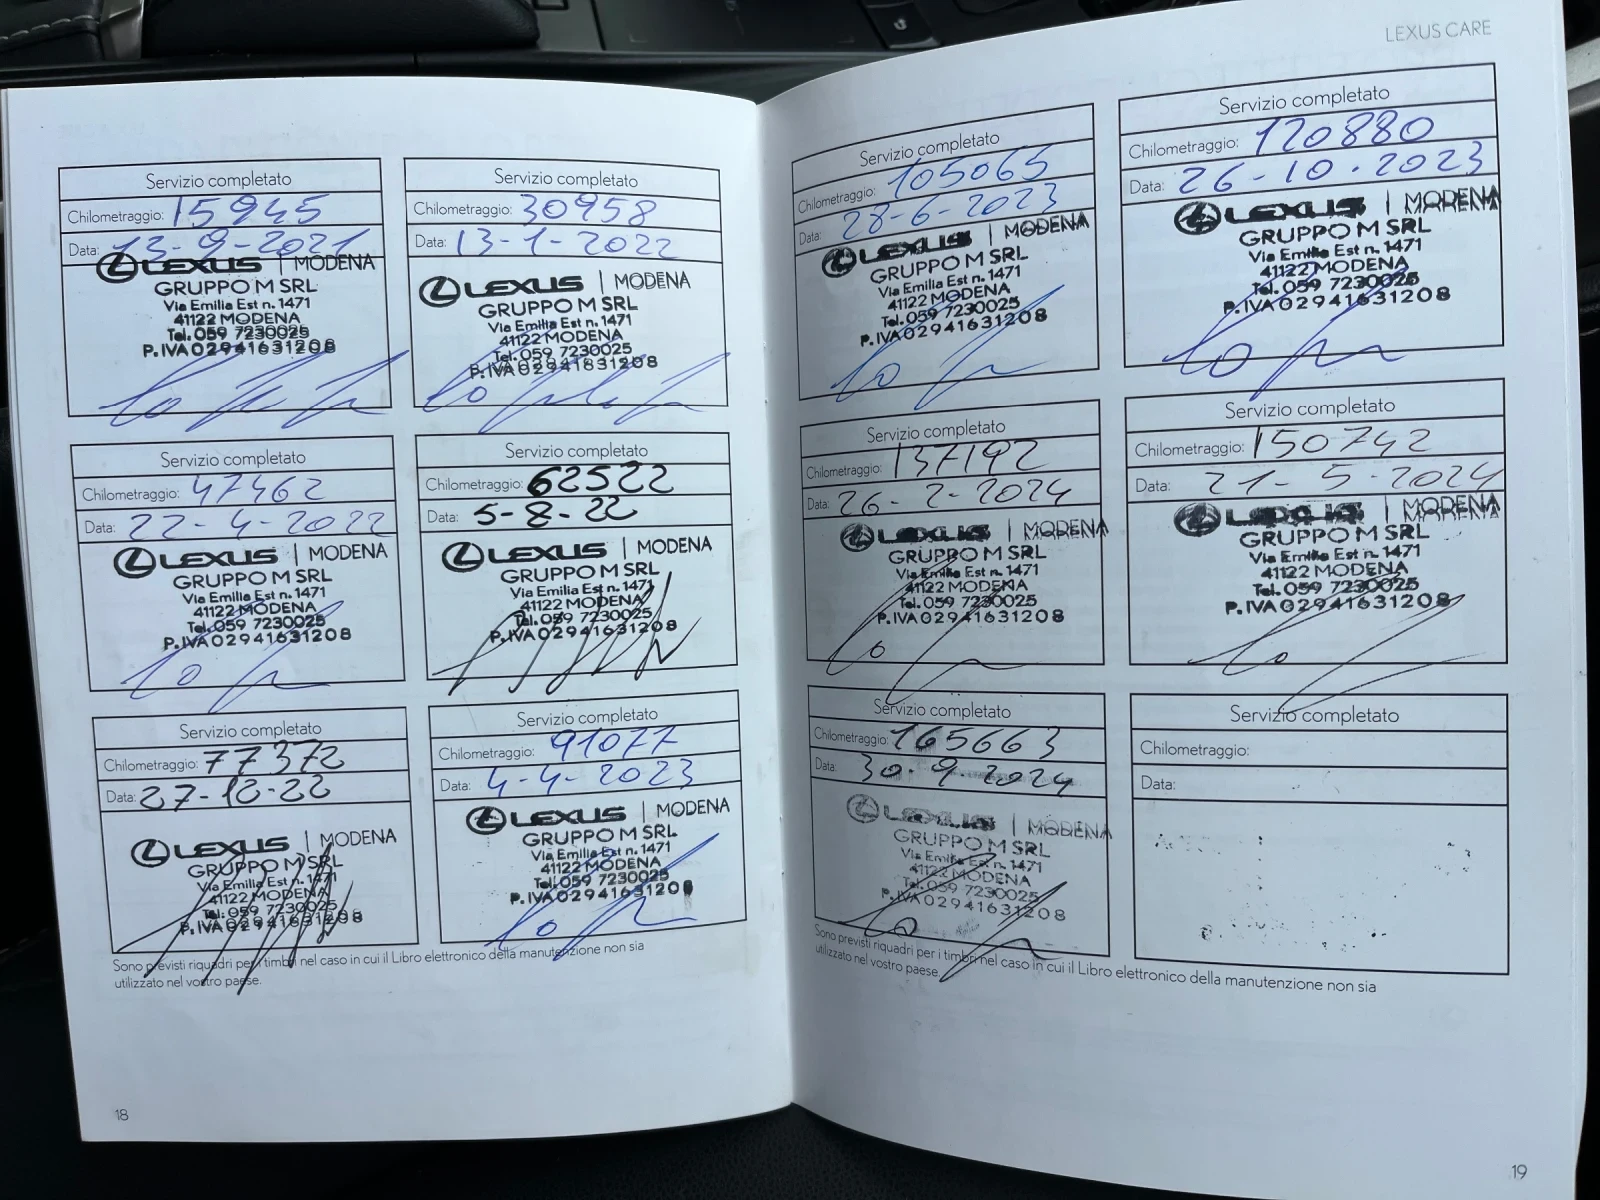 Servizio completato
Chilometraggio: 15945
Data: 13-9-2021
LEXUS | MODENA
GRUPPO M SRL
Via Emilia Est n. 1471
41122 MODENA
Tel. 059 7230025
P. IVA 02941631208
Servizio completato
Chilometraggio: 30958
Data: 13-1-2022
LEXUS | MODENA
GRUPPO M SRL
Via Emilia Est n. 1471
41122 MODENA
Tel. 059 7230025
P. IVA 02941631208
Servizio completato
Chilometraggio: 47462
Data: 22-4-2022
LEXUS | MODENA
GRUPPO M SRL
Via Emilia Est n. 1471
41122 MODENA
Tel. 059 7230025
P. IVA 02941631208
Servizio completato
Chilometraggio: 62522
Data: 5-8-22
LEXUS | MODENA
GRUPPO M SRL
Via Emilia Est n. 1471
41122 MODENA
Tel. 059 7230025
P. IVA 02941631208
Servizio completato
Chilometraggio: 77372
Data: 27-12-22
LEXUS | MODENA
GRUPPO M SRL
Via Emilia Est n. 1471
41122 MODENA
Tel. 059 7230025
P. IVA 02941631208
Servizio completato
Chilometraggio: 91077
Data: 4-4-2023
LEXUS | MODENA
GRUPPO M SRL
Via Emilia Est n. 1471
41122 MODENA
Tel. 059 7230025
P. IVA 02941631208
Sono previsti riquadri per i timbri nel caso in cui il Libro elettronico della manutenzione non sia
utilizzato nel vostro paese.
18
LEXUS CARE
Servizio completato
Chilometraggio: 105065
Data: 28-6-2023
LEXUS | MODENA
GRUPPO M SRL
Via Emilia Est n. 1471
41122 MODENA
Tel. 059 7230025
P. IVA 02941631208
Servizio completato
Chilometraggio: 120880
Data: 26-10.2023
LEXUS | MODENA
GRUPPO M SRL
Via Emilia Est n. 1471
41122 MODENA
Tel. 059 7230025
P. IVA 02941631208
Servizio completato
Chilometraggio: 137192
Data: 26-2-2024
LEXUS | MODENA
GRUPPO M SRL
Via Emilia Est n. 1471
41122 MODENA
Tel. 059 7230025
P. IVA 02941631208
Servizio completato
Chilometraggio: 150742
Data: 21-5-2024
LEXUS | MODENA
GRUPPO M SRL
Via Emilia Est n. 1471
41122 MODENA
Tel. 059 7230025
P. IVA 02941631208
Servizio completato
Chilometraggio: 165663
Data: 30.9.2024
LEXUS | MODENA
GRUPPO M SRL
Via Emilia Est n. 1471
41122 MODENA
Tel. 059 7230025
P. IVA 02941631208
Servizio completato
Chilometraggio:
Data:
Sono previsti riquadri per i timbri nel caso in cui il Libro elettronico della manutenzione non sia
utilizzato nel vostro paese.
19